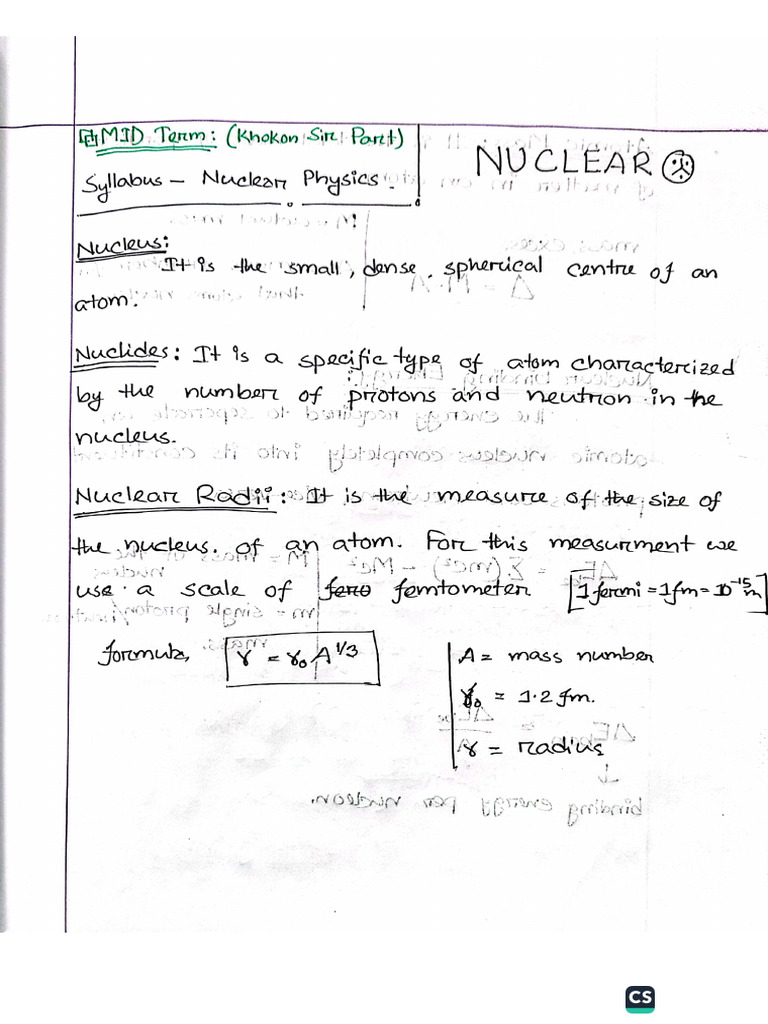 MID Term: (Khokon Sir Part)
NUCLEAR
Syllabus - Nuclear Physics.
Nucleus:
It is the small, dense, spherical centre of an
atom.
Nuclides: It is a specific type of atom characterized
by the number of protons and neutron in the
nucleus.
Nuclear Radii: It is the measure of the size of
the nucleus. of an atom. For this measurment we
use a scale of femtometer [1 fermi = 1 fm = 10⁻¹⁵ m]
formula, r = r₀ A^1/3
A = mass number
r₀ = 1.2 fm.
r = radius
CS